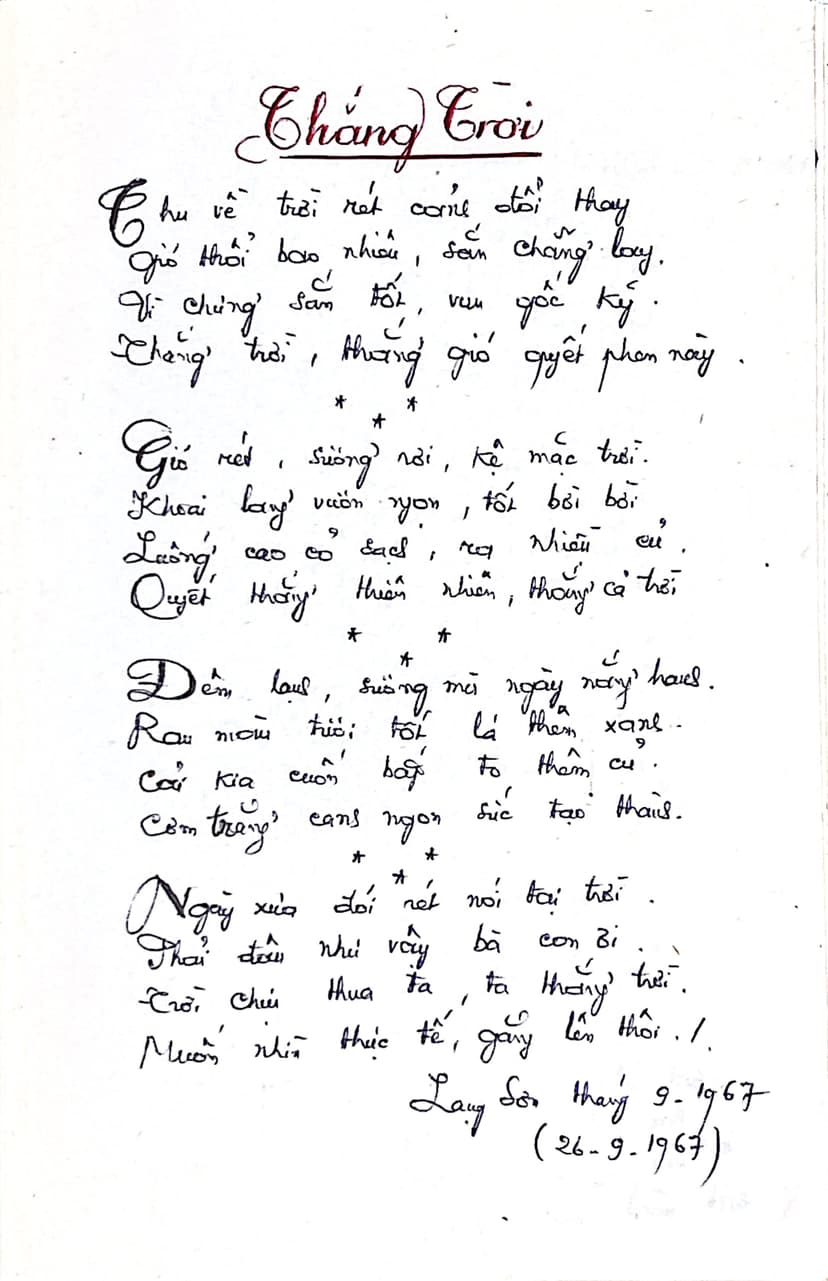 Thắng Trời
Thu về trời rét cảnh đổi thay
Gió thổi bao nhiêu, sắn chẳng lay.
Vì chưng sắn tốt, vun gốc kỹ.
Thắng trời, thắng gió quyết phen này.
* * *
Gió rét, sương rơi, kệ mặc trời.
Khoai lang vườn ngon, tốt bời bời
Luống cao cỏ sạch, ra nhiều củ.
Quyết thắng thiên nhiên, thắng cả trời
* * *
Đêm lạnh, sương mù ngày nắng hanh.
Rau màu tươi tốt lá thêm xanh.
Cải kia cuốn bắp to thêm củ.
Cơm trắng canh ngon sức tạo thành.
* * *
Ngày xưa đói rét nói tại trời.
Phải đâu như vậy bà con ơi.
Trời chịu thua ta, ta thắng trời.
Muốn nhìn thực tế, gắng lên thôi./.
Lạng Sơn tháng 9-1967
(26-9-1967)